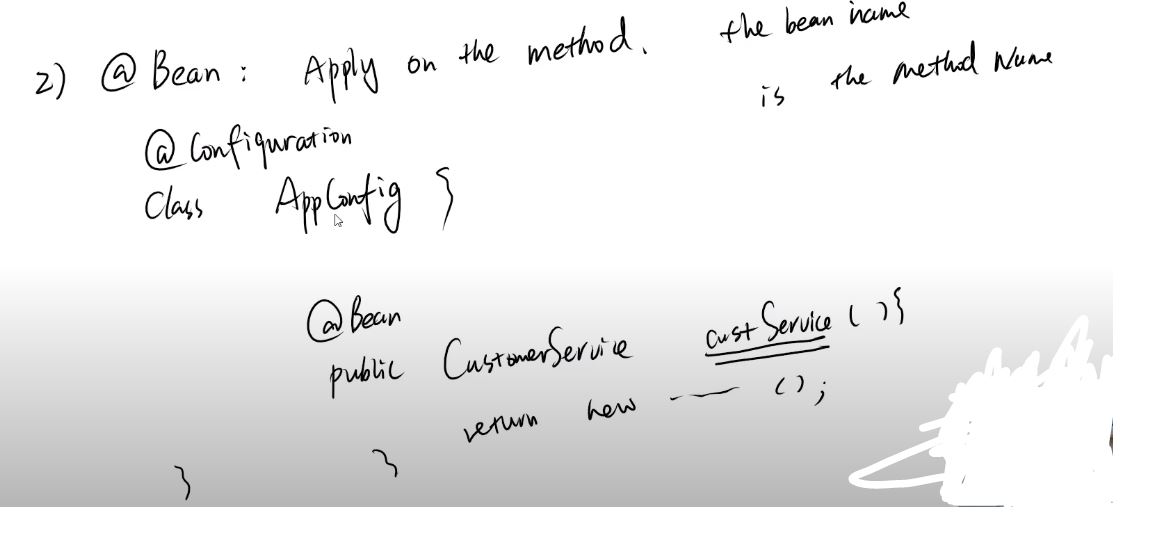 2) @ Bean : Apply on the method. the bean name
is the method Name
@ Configuration
Class AppConfig {
@ Bean
public CustomerService custService ( ) {
return new —— ( ) ;
}
}